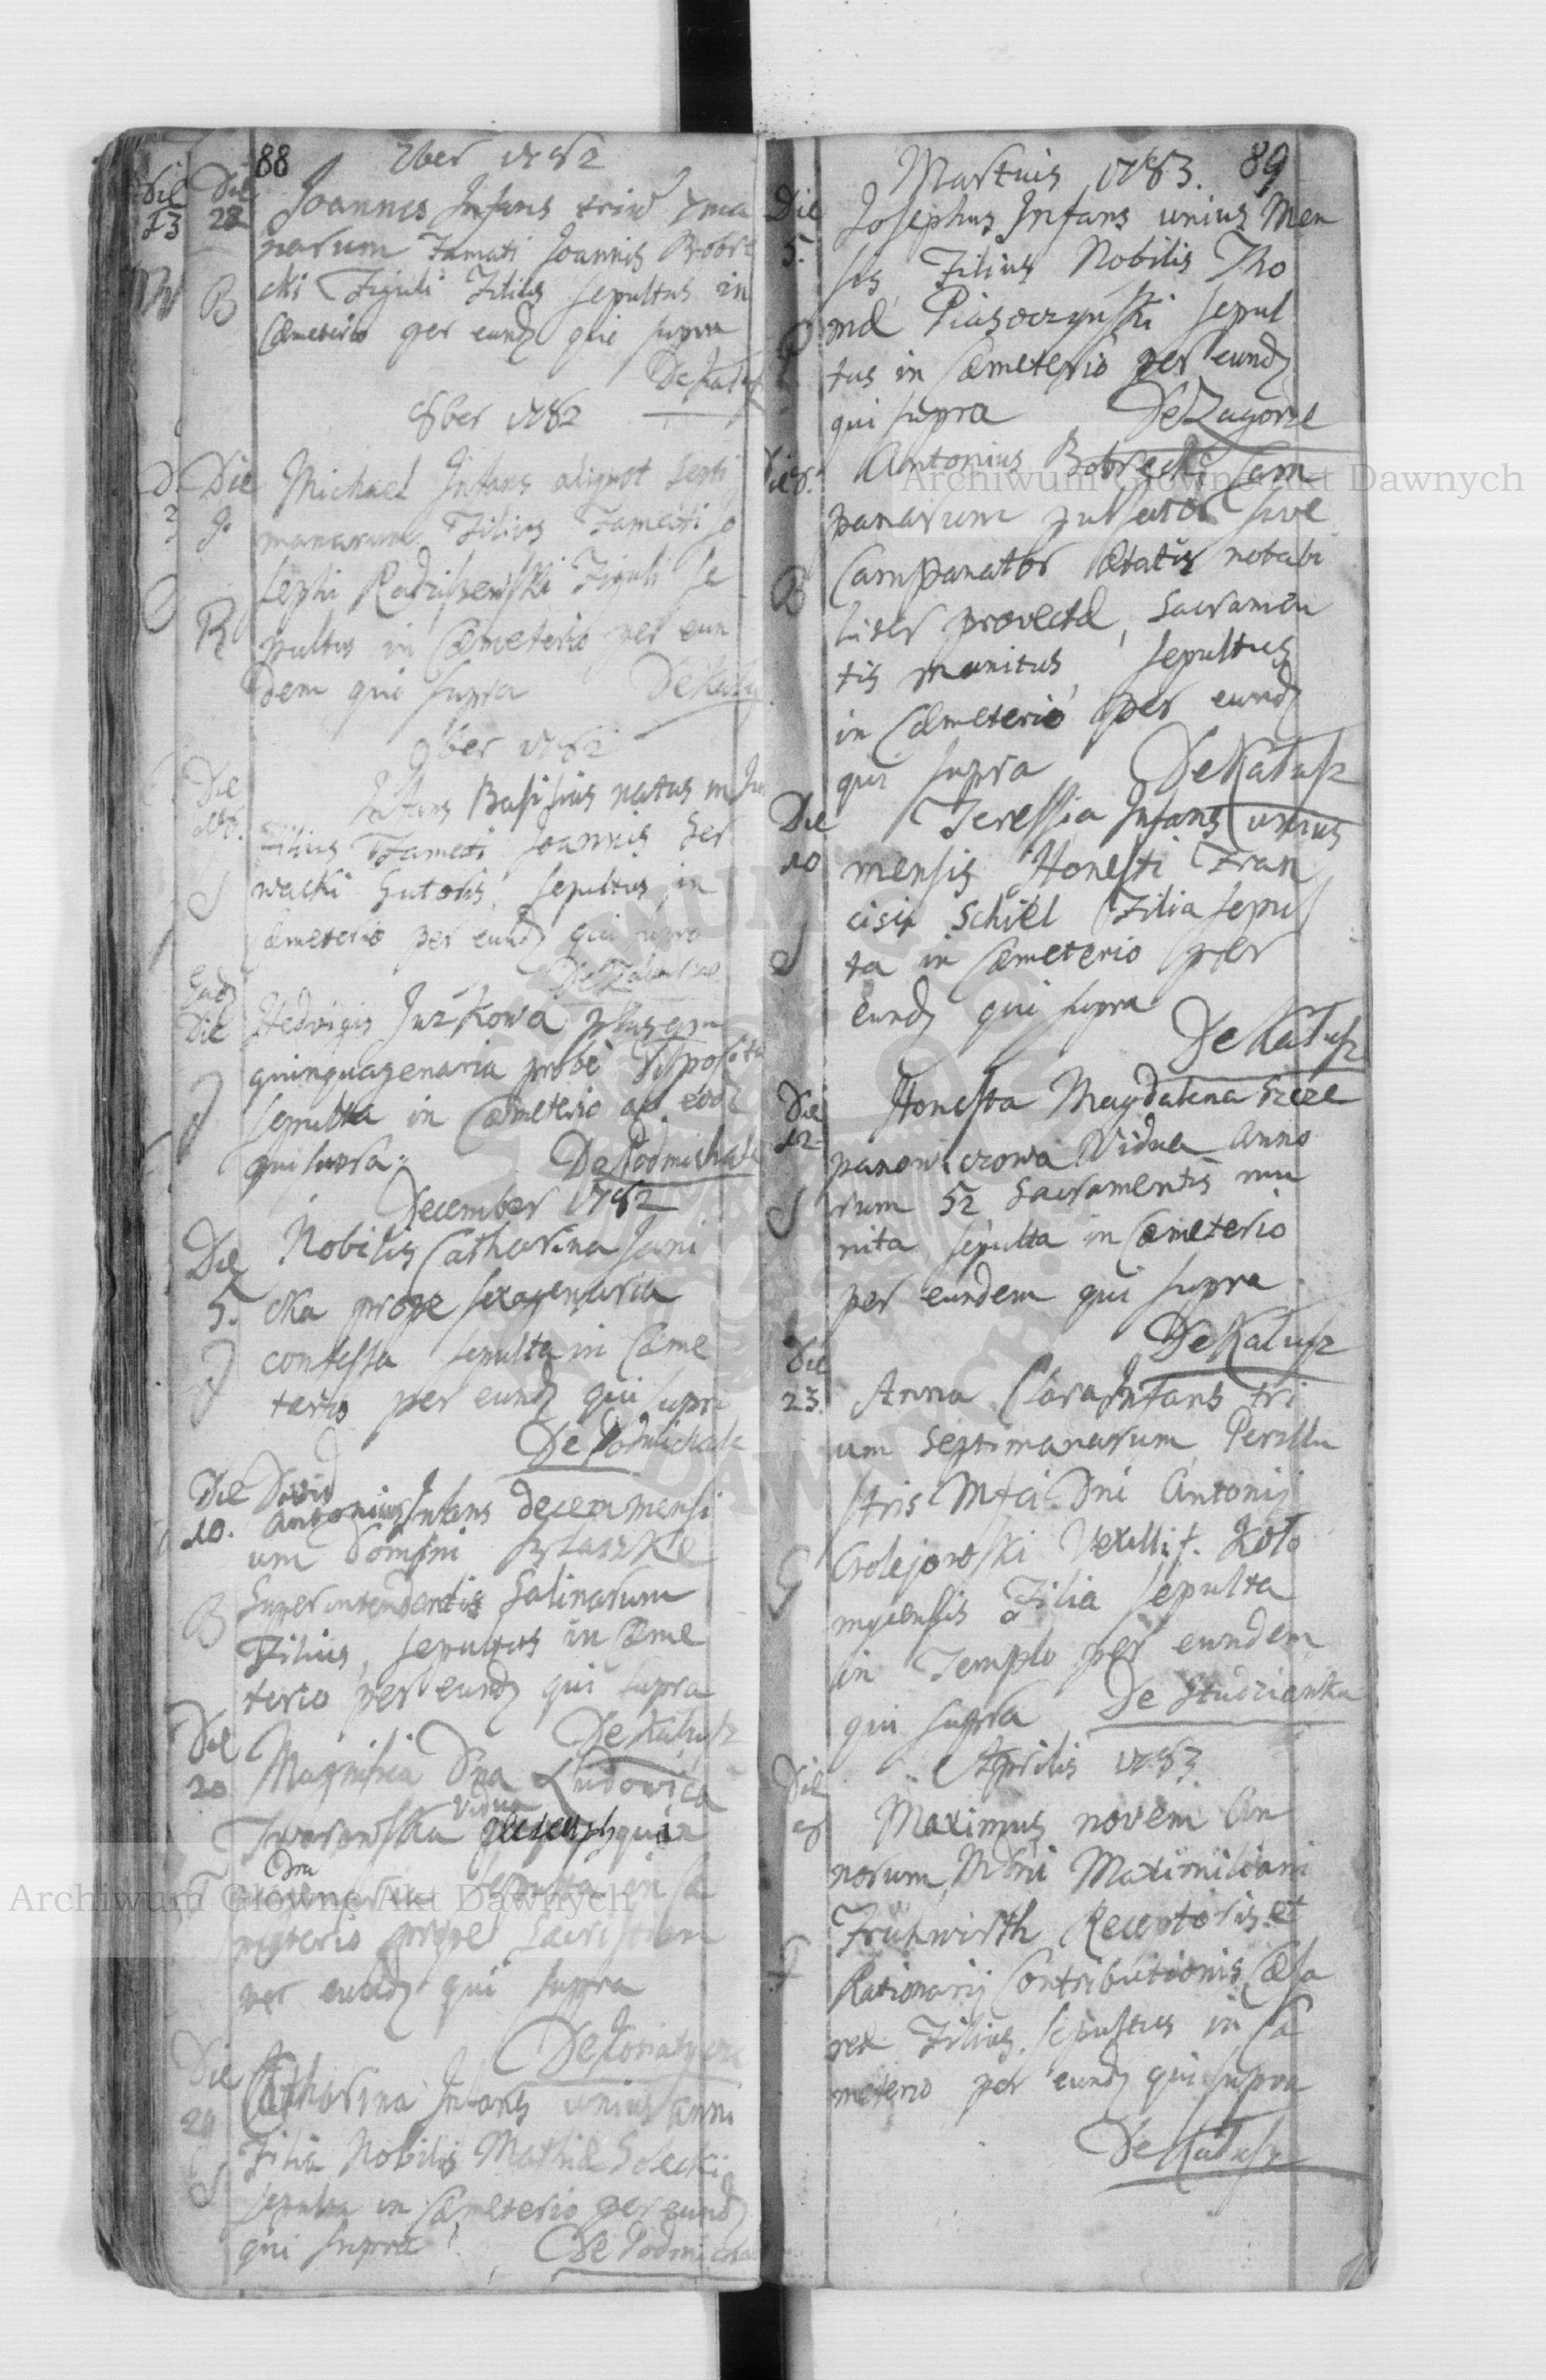 88
7ber 1782
Die 13
Die 22
B
Joannes Infans trium 7ma
narum Famati Joannis Bobre
cki Figuli Filius sepultus in
Cæmeterio per eund qui supra
De Kałusz
8ber 1782
Die 9
R
Michael Infans aliquot Septi
manarum Filius Famati Jo
sephi Radziszewski Figuli se
pultus in Cæmeterio per eun
dem qui supra De Kałusz
9ber 1782
Die
S
Infans Basilius natus
Filius Famati Joannis Ser
wacki Sutoris, sepultus in
Cæmeterio per eund qui supra
Ead
Die
J
Hedvigis Jurkowa plusquam
quinquagenaria probe disposita
sepulta in Cæmeterio ab eod
qui supra. De Podmichale
December 1782
Die
5.
J
Nobilis Catharina Jani
cka prope sexagenaria
confessa sepulta in Cæme
terio per eund qui supra
De Podmichale
Die
10.
B
David
Antonius Infans decem mensi
um Domini
Superintendentis Salinarum
Filius, sepultus in Cæme
terio per eund qui supra
De Kałusz
Die
20
T
Magnifica Dna Ludovica
Tworowska vidua
sepulta in Cæ
meterio prope Sacristiam
per eund qui supra
Die
29
S
Catharina Infans unius anni
Filia Nobilis Mathiæ Solecki
sepulta in Cæmeterio per eund
qui supra De Podmichale
Martius 1783. 89
Die
5.
P
Josephus Infans unius Men
sis Filius Nobilis Tho
mæ Piasoczynski sepul
tus in Cæmeterio per eund
qui supra De Zagorze
Die 8.
B
Antonius Bobrecki Cam
panarum pulsator sive
Campanator ætatis notabi
liter provectæ, Sacramen
tis munitus, sepultus
in Cæmeterio per eund
qui supra De Kałusz
Die
10
S
Teressia Infans unius
mensis Honesti Fran
cisci Schiel Filia sepul
ta in Cæmeterio per
eund qui supra
De Kałusz
Die
12
S
Honesta Magdalena Szcze
panowiczowa Vidua Anno
rum 52 Sacramentis mu
nita sepulta in Cæmeterio
per eundem qui supra
De Kałusz
Die
23.
G
Anna Clara Infans tri
um Septimanarum Perillu
stris Mfci Dni Antonij
Grolejowski Vexillif. Koło
myiensis Filia sepulta
in Templo per eundem
qui supra De Studzianka
Aprilis 1783
Die
F
Maximus novem An
norum, Mdni Maximiliani
Frühwirth Receptoris et
Rationarij Contributionis Cæsa
reæ Filius. sepultus in Cæ
meterio per eund qui supra
De Kałusz
Archiwum Główne Akt Dawnych
Archiwum Główne Akt Dawnych